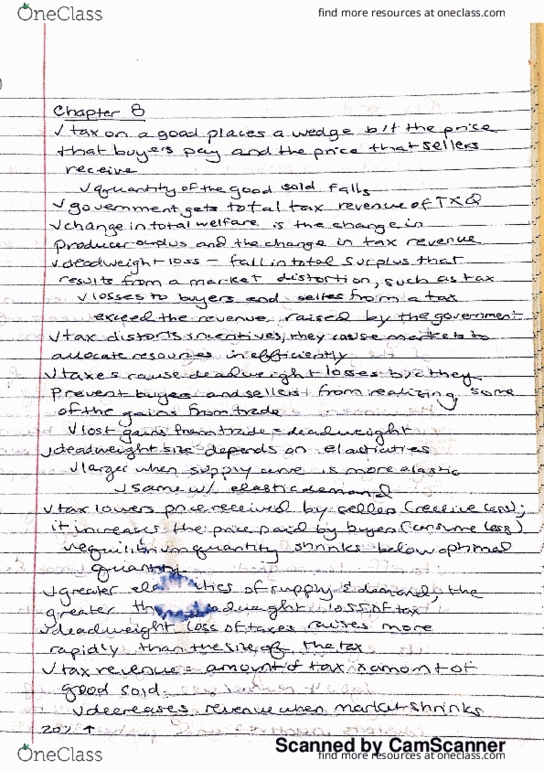 OneClass
find more resources at oneclass.com
Chapter 8
✓ tax on a good places a wedge b/t the price
that buyers pay and the price that sellers
receive
✓ quantity of the good sold falls
✓ government gets total tax revenue of TXQ
✓ change in total welfare is the change in
producer surplus and the change in tax revenue
✓ deadweight loss - fall in total surplus that
results from a market distortion, such as tax
✓ losses to buyers and selles from a tax
exceed the revenue raised by the government
✓ tax distorts incentives, they cause markets to
allocate resources inefficiently
✓ taxes cause deadweight losses b/c they
prevent buyers and sellers from realizing some
of the gains from trade
✓ lost gains from trade = deadweight
✓ deadweight size depends on elasticities
✓ larger when supply curve is more elastic
✓ same w/ elastic demand
✓ tax lowers price received by seller (receive less);
it increases the price paid by buyer (consume less)
✓ equilibrium quantity shrinks below optimal
quantity
✓ greater of supply & demand, the
greater loss of tax
✓ deadweight loss of taxes raises more
rapidly than the size of the tax
✓ tax revenue = amount of tax x amount of
good sold
✓ decreases revenue when market shrinks
OneClass
Scanned by CamScanner
find more resources at oneclass.com